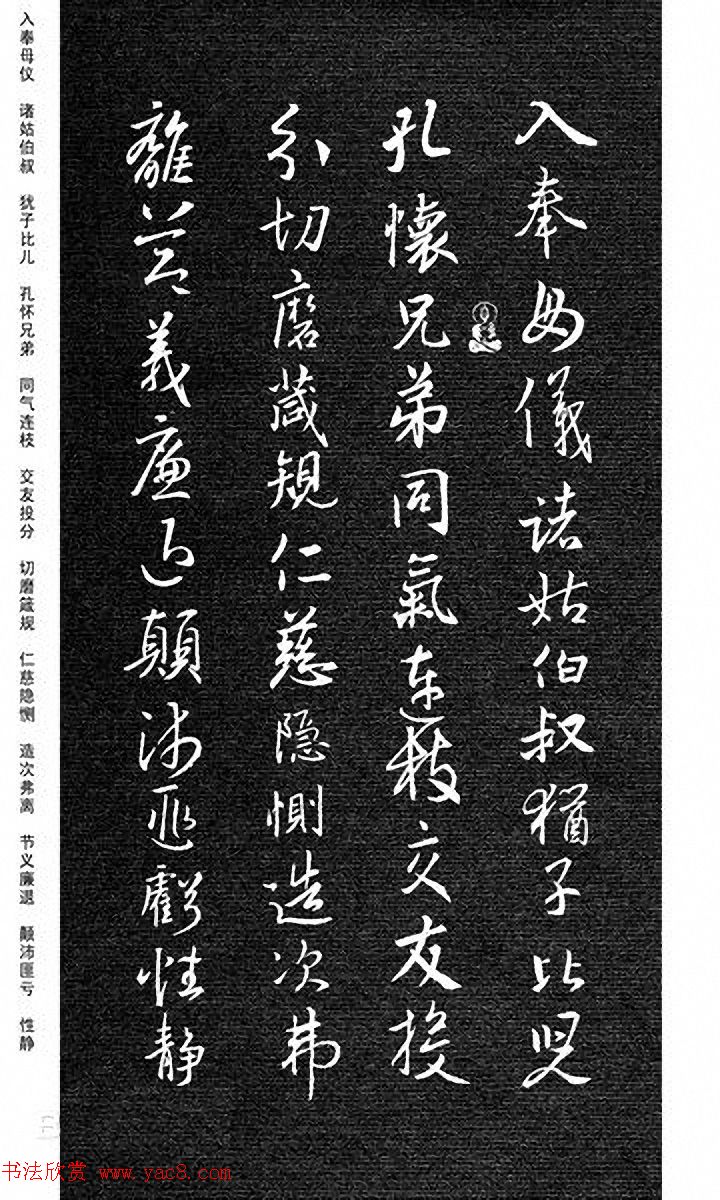 入奉母儀諸姑伯叔猶子比兒
孔懷兄弟同氣連枝交友投
分切磨箴規仁慈隐惻造次弗
離节義廉退顛沛匪虧性静
入奉母仪 诸姑伯叔 犹子比儿 孔怀兄弟 同气连枝 交友投分 切磨箴规 仁慈隐恻 造次弗离 节义廉退 颠沛匪亏 性静
书法欣赏 www.yac8.com